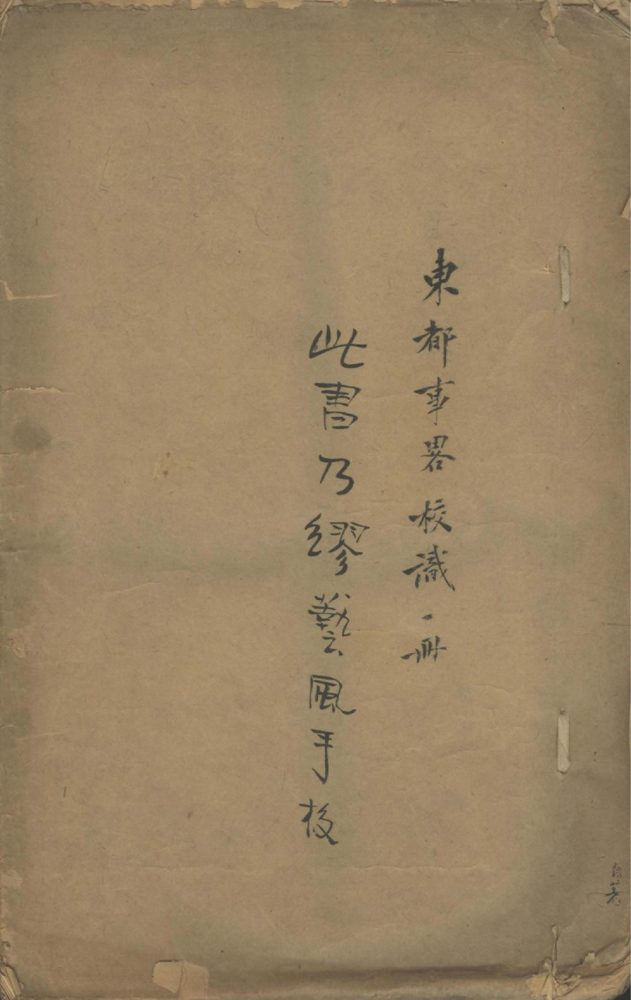 東都事畧校識一冊
此書乃繆藝風手校